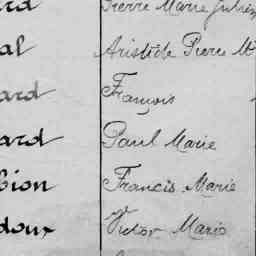 ard Pierre Marie Julien
al Aristide Pierre M
ard François
ard Paul Marie
bion Francis Marie
doux Victor Marie